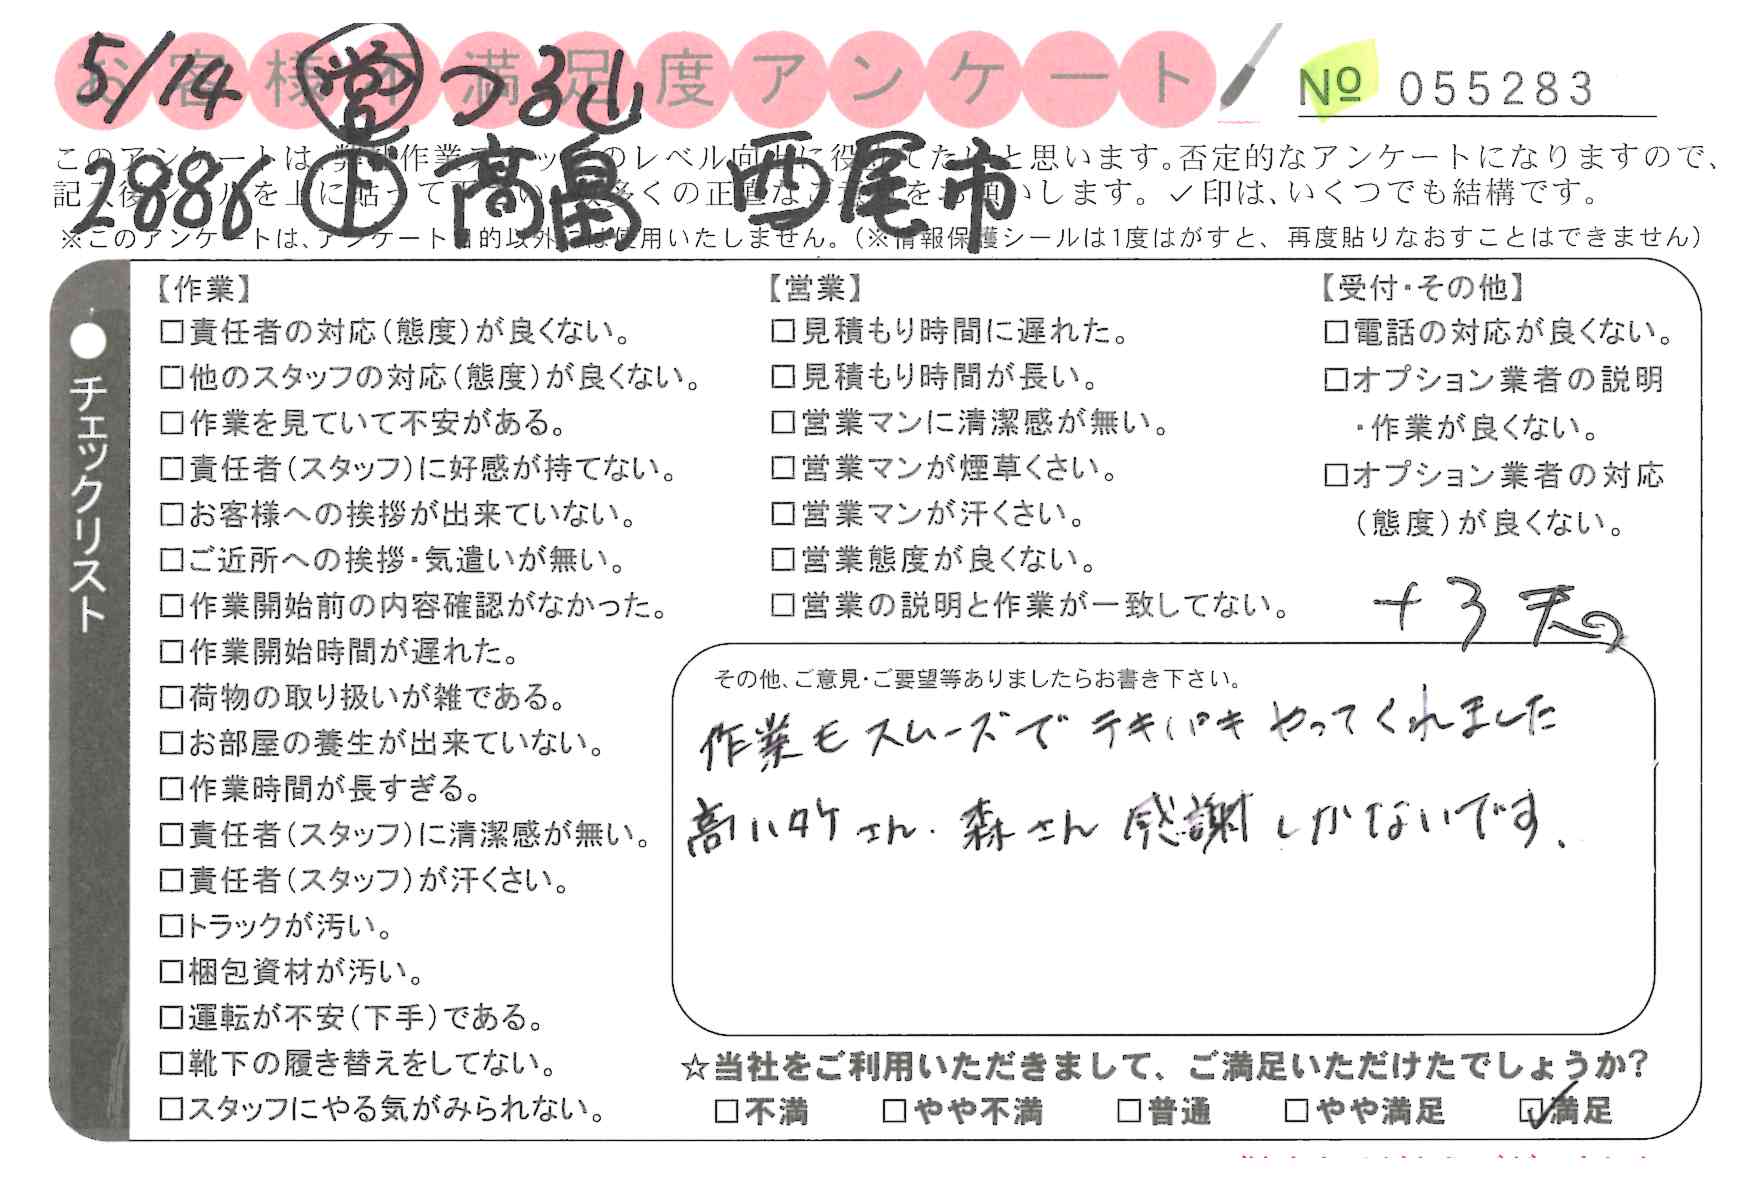 お客様不満足度アンケート
№ 055283
5/14 営 つる山
2886 上 高畠 西尾市
このアンケートは、弊社作業スタッフのレベル向上に役立てたいと思います。否定的なアンケートになりますので、
記入後シールを上に貼って下さい。数多くの正直なご意見をお願いします。✓印は、いくつでも結構です。
※このアンケートは、アンケート目的以外には使用いたしません。(※情報保護シールは1度はがすと、再度貼りなおすことはできません)
●チェックリスト
【作業】
□責任者の対応(態度)が良くない。
□他のスタッフの対応(態度)が良くない。
□作業を見ていて不安がある。
□責任者(スタッフ)に好感が持てない。
□お客様への挨拶が出来ていない。
□ご近所への挨拶・気遣いが無い。
□作業開始前の内容確認がなかった。
□作業開始時間が遅れた。
□荷物の取り扱いが雑である。
□お部屋の養生が出来ていない。
□作業時間が長すぎる。
□責任者(スタッフ)に清潔感が無い。
□責任者(スタッフ)が汗くさい。
□トラックが汚い。
□梱包資材が汚い。
□運転が不安(下手)である。
□靴下の履き替えをしてない。
□スタッフにやる気がみられない。
【営業】
□見積もり時間に遅れた。
□見積もり時間が長い。
□営業マンに清潔感が無い。
□営業マンが煙草くさい。
□営業マンが汗くさい。
□営業態度が良くない。
□営業の説明と作業が一致してない。
【受付・その他】
□電話の対応が良くない。
□オプション業者の説明
・作業が良くない。
□オプション業者の対応
(態度)が良くない。
+3
その他、ご意見・ご要望等ありましたらお書き下さい。
作業もスムーズでテキパキやってくれました
高ハタケさん・森さん感謝しかないです。
☆当社をご利用いただきまして、ご満足いただけたでしょうか?
□不満 □やや不満 □普通 □やや満足 ☑満足